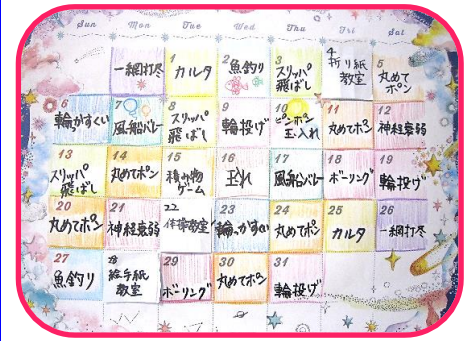 Sun Mon Tue Wed Thu Fri Sat
一網打尽
1 カルタ
2 魚釣り
3 スリッパ
飛ばし
4 折り紙
教室
5 丸めて
ポン
6 輪っかすくい
7 風船バレー
8 スリッパ
飛ばし
9 輪投げ
10 ピンポン
玉入れ
11 丸めてポン
12 神経衰弱
13 スリッパ
飛ばし
14 丸めてポン
15 積み物
ゲーム
16 玉入れ
17 風船バレー
18 ボーリング
19 輪投げ
20 丸めてポン
21 神経衰弱
22 体操教室
23 輪っかすくい
24 丸めてポン
25 カルタ
26 一網打尽
27 魚釣り
28 絵手紙
教室
29 ボーリング
30 丸めてポン
31 輪投げ